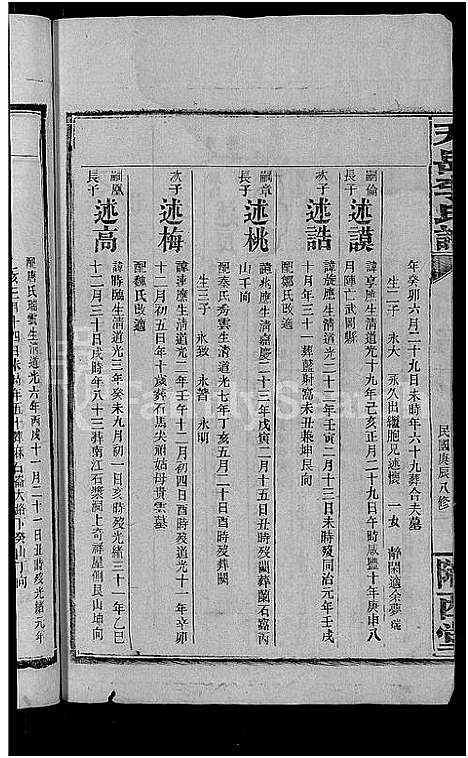 天岳李氏譜
民國庚辰八修
隴西堂
年癸卯六月二十九日未時年六十九葬合夫墓
生二子 永大 永久出繼胞兄述懷 一女 靜閑適余夢瑞
嗣倫長子 述謨 諱享應生清道光十九年己亥正月二十九日午時咸豐十年庚申八
月陣亡武岡縣
次子 述誥 諱應生清道光二十二年壬寅二月十三日未時歿同治元年壬戌
十月年三十一葬盤射窩未丑兼坤艮向
配鄒氏改適
嗣章長子 述桃 諱兆應生清嘉慶二十三年戊寅二月十五日丑時歿闕葬蘭石窩丙
山壬向
配秦氏秀雲生清道光七年丁亥五月二十日酉時歿葬闕
生三子 永致 永著 永明
次子 述梅 諱應生清道光二年壬午十二月初四日酉時歿道光十一年辛卯
十二月初五日年十歲葬石馬尖祔姑母貴雲墓
配魏氏改適
嗣凰長子 述高 諱臨應生清道光三年癸未九月初一日亥時歿光緒三十一年乙巳
十二月三十日戌時年八十三葬南江石漿洞上奇祥屋側艮山坤向
配唐氏瑞雲生清道光六年丙戌十一月二十一日丑時歿光緒元年
乙亥正月十四日未時年五十葬麻石崙大路下癸山丁向